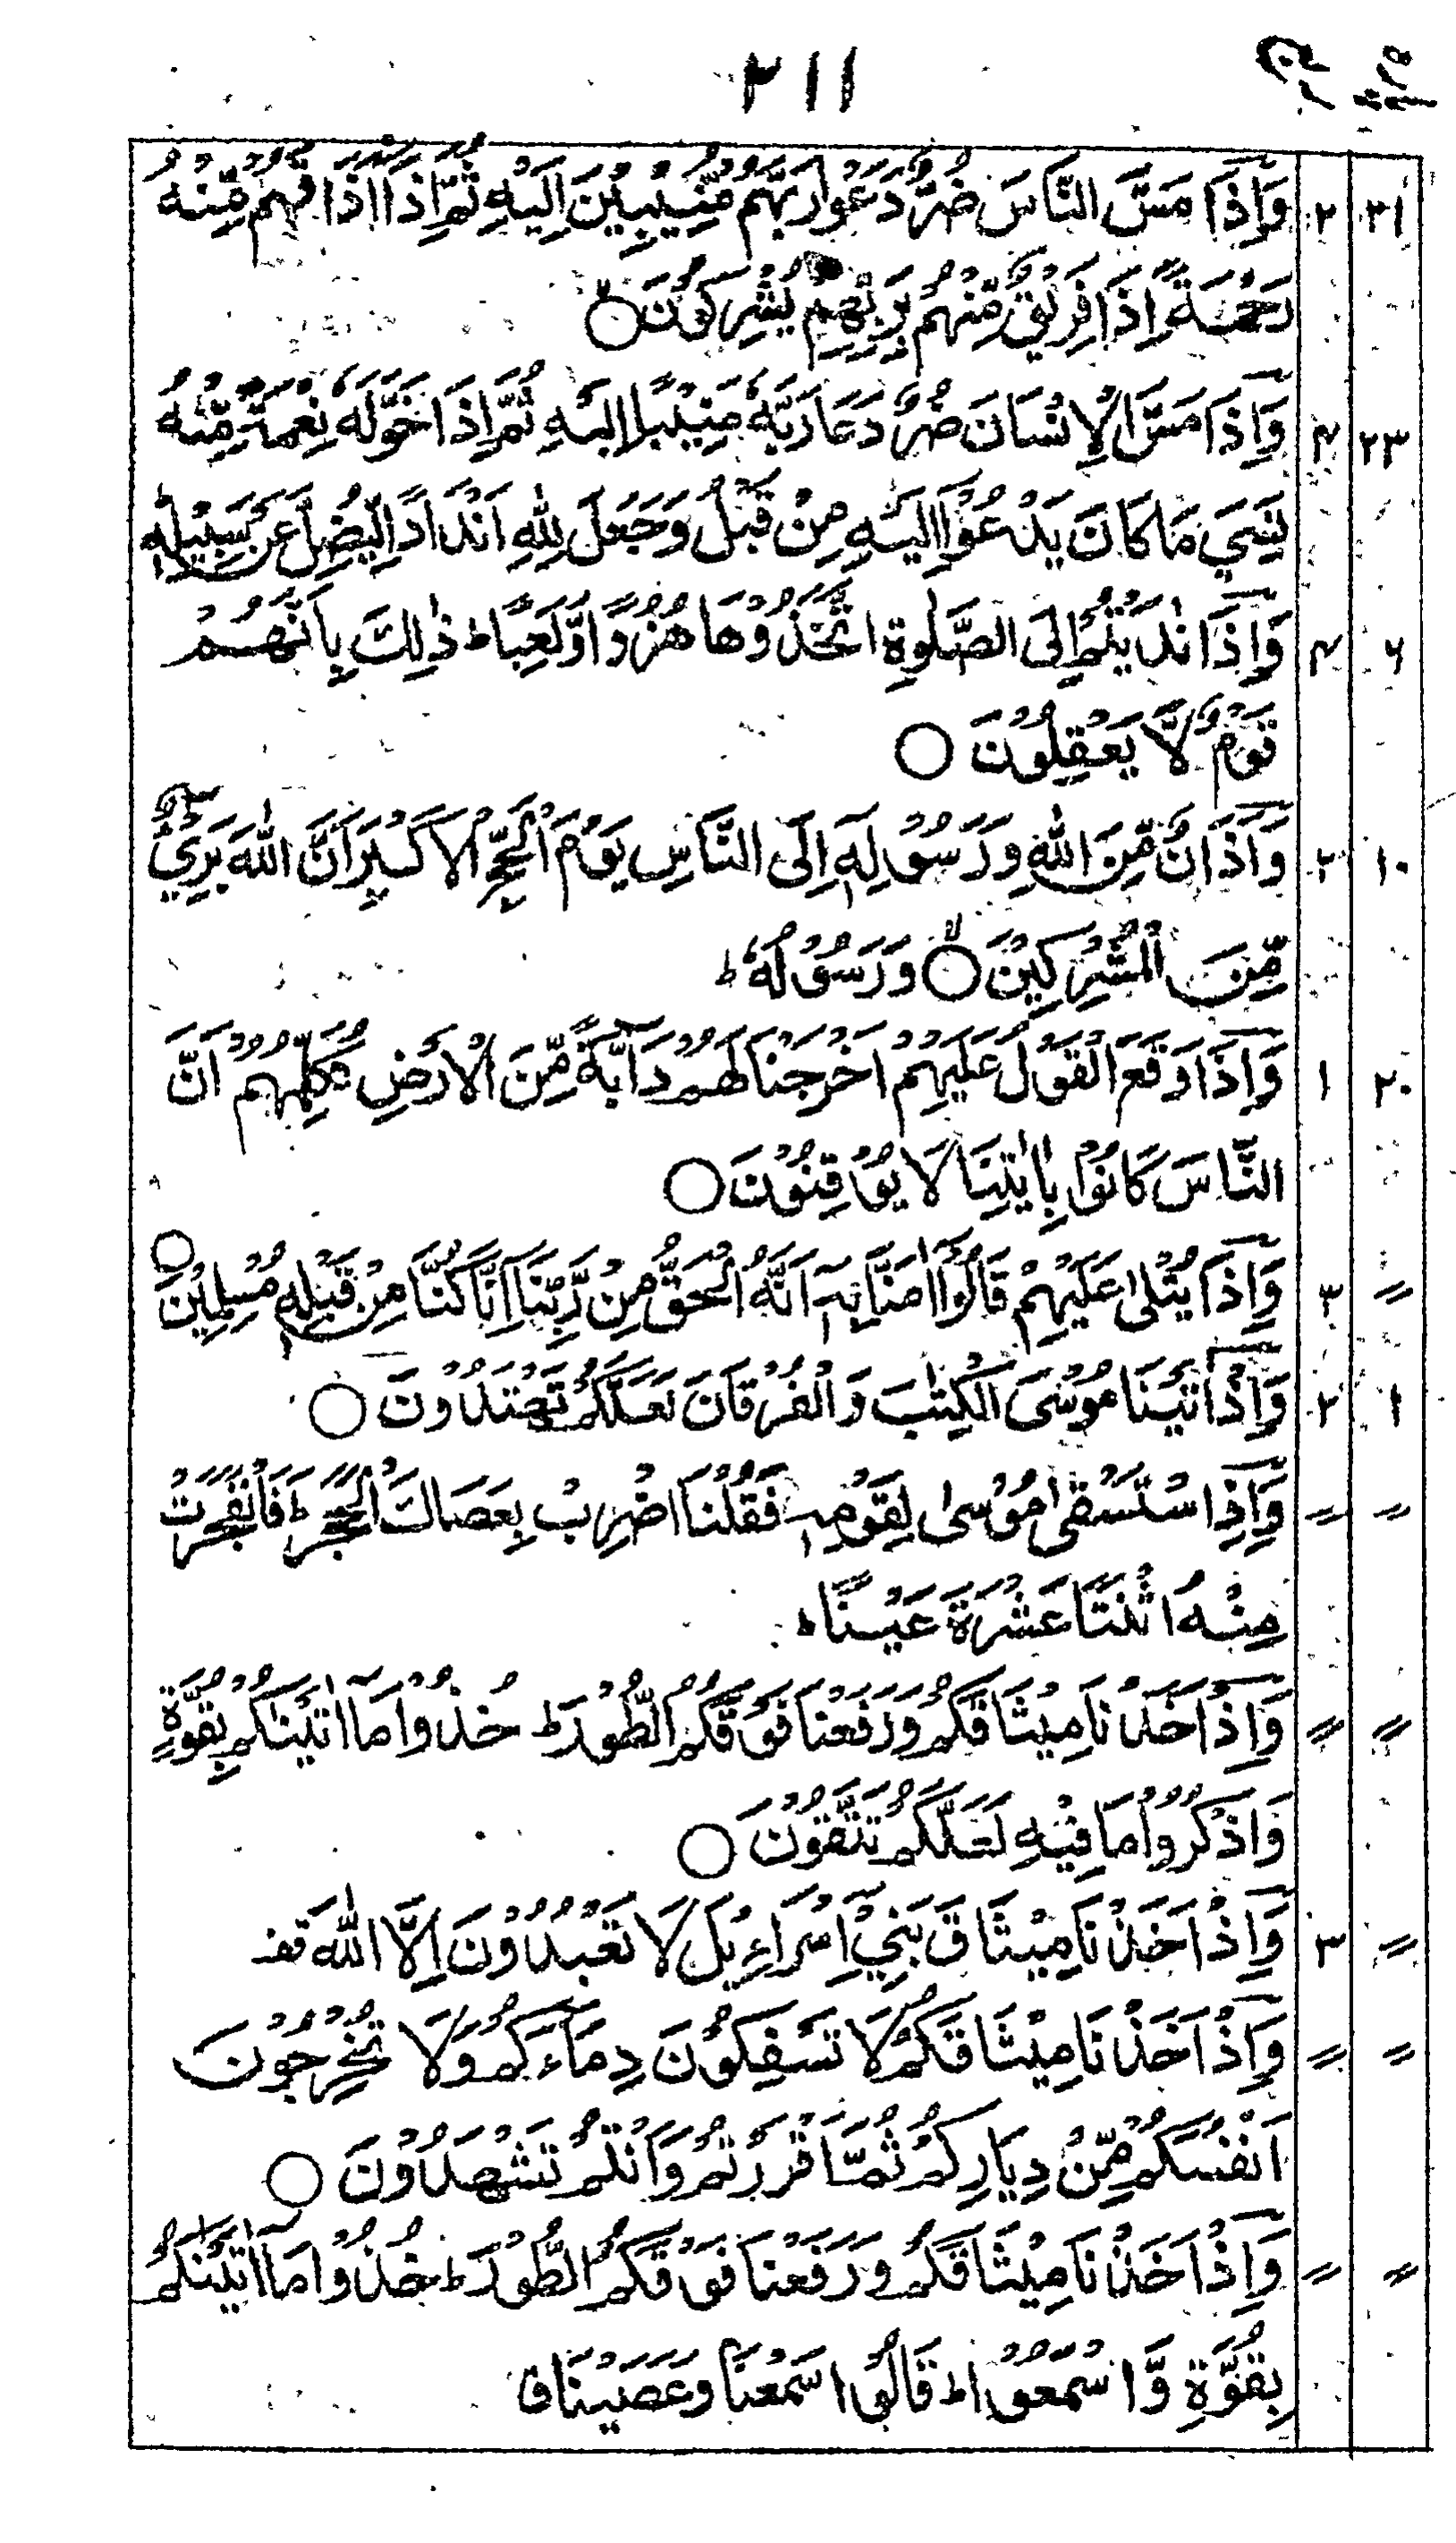 ٣١١
وَاِذَا مَسَّ النَّاسَ ضُرٌّ دَعَوْا رَبَّهُمْ مُّنِيْبِيْنَ اِلَيْهِ ثُمَّ اِذَا اَذَاقَهُمْ مِّنْهُ ٢ ٢١
رَحْمَةً اِذَا فَرِيْقٌ مِّنْهُمْ بِرَبِّهِمْ يُشْرِكُوْنَ ○
وَاِذَا مَسَّ الْاِنْسَانَ ضُرٌّ دَعَا رَبَّهٗ مُنِيْبًا اِلَيْهِ ثُمَّ اِذَا خَوَّلَهٗ نِعْمَةً مِّنْهُ ٤ ٢٣
نَسِيَ مَا كَانَ يَدْعُوْٓا اِلَيْهِ مِنْ قَبْلُ وَجَعَلَ لِلّٰهِ اَنْدَادًا لِّيُضِلَّ عَنْ سَبِيْلِهٖ ط
وَاِذَا نَادَيْتُمْ اِلَى الصَّلٰوةِ اتَّخَذُوْهَا هُزُوًا وَّلَعِبًا ط ذٰلِكَ بِاَنَّهُمْ ٤ ٦
قَوْمٌ لَّا يَعْقِلُوْنَ ○
وَاَذَانٌ مِّنَ اللّٰهِ وَرَسُوْلِهٖٓ اِلَى النَّاسِ يَوْمَ الْحَجِّ الْاَكْبَرِ اَنَّ اللّٰهَ بَرِيْٓءٌ ٢ ١٠
مِّنَ الْمُشْرِكِيْنَ ○ وَرَسُوْلُهٗ ط
وَاِذَا وَقَعَ الْقَوْلُ عَلَيْهِمْ اَخْرَجْنَا لَهُمْ دَآبَّةً مِّنَ الْاَرْضِ تُكَلِّمُهُمْ اَنَّ ١ ٢٠
النَّاسَ كَانُوْا بِاٰيٰتِنَا لَا يُوْقِنُوْنَ ○
وَاِذَا يُتْلٰى عَلَيْهِمْ قَالُوْٓا اٰمَنَّا بِهٖٓ اِنَّهُ الْحَقُّ مِنْ رَّبِّنَآ اِنَّا كُنَّا مِنْ قَبْلِهٖ مُسْلِمِيْنَ ○ ٣ ״
وَاِذْ اٰتَيْنَا مُوْسَى الْكِتٰبَ وَالْفُرْقَانَ لَعَلَّكُمْ تَهْتَدُوْنَ ○ ٢ ١
وَاِذِ اسْتَسْقٰى مُوْسٰى لِقَوْمِهٖ فَقُلْنَا اضْرِبْ بِعَصَاكَ الْحَجَرَ ط فَانْفَجَرَتْ ״ ״
مِنْهُ اثْنَتَا عَشْرَةَ عَيْنًا ط
وَاِذْ اَخَذْنَا مِيْثَاقَكُمْ وَرَفَعْنَا فَوْقَكُمُ الطُّوْرَ ط خُذُوْا مَآ اٰتَيْنٰكُمْ بِقُوَّةٍ ״ ״
وَاذْكُرُوْا مَا فِيْهِ لَعَلَّكُمْ تَتَّقُوْنَ ○
وَاِذْ اَخَذْنَا مِيْثَاقَ بَنِيْٓ اِسْرَآءِيْلَ لَا تَعْبُدُوْنَ اِلَّا اللّٰهَ قف ٣ ״
وَاِذْ اَخَذْنَا مِيْثَاقَكُمْ لَا تَسْفِكُوْنَ دِمَآءَكُمْ وَلَا تُخْرِجُوْنَ ״ ״
اَنْفُسَكُمْ مِّنْ دِيَارِكُمْ ثُمَّ اَقْرَرْتُمْ وَاَنْتُمْ تَشْهَدُوْنَ ○
وَاِذْ اَخَذْنَا مِيْثَاقَكُمْ وَرَفَعْنَا فَوْقَكُمُ الطُّوْرَ ط خُذُوْا مَآ اٰتَيْنٰكُمْ ״ ״
بِقُوَّةٍ وَّاسْمَعُوْا ط قَالُوْا سَمِعْنَا وَعَصَيْنَا ق